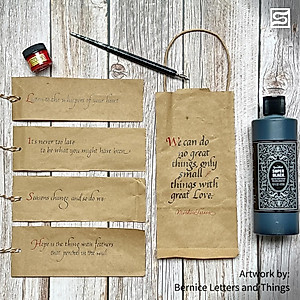 Love is the whisper of your heart
It's never too late
to be what you might have been.
Seasons change, and so do we
Hope is the thing with feathers
that perches in the soul
We can do
no great
things, only
small
things with
great Love.
SUPER BLACK
Artwork by:
Bernice Letters and Things